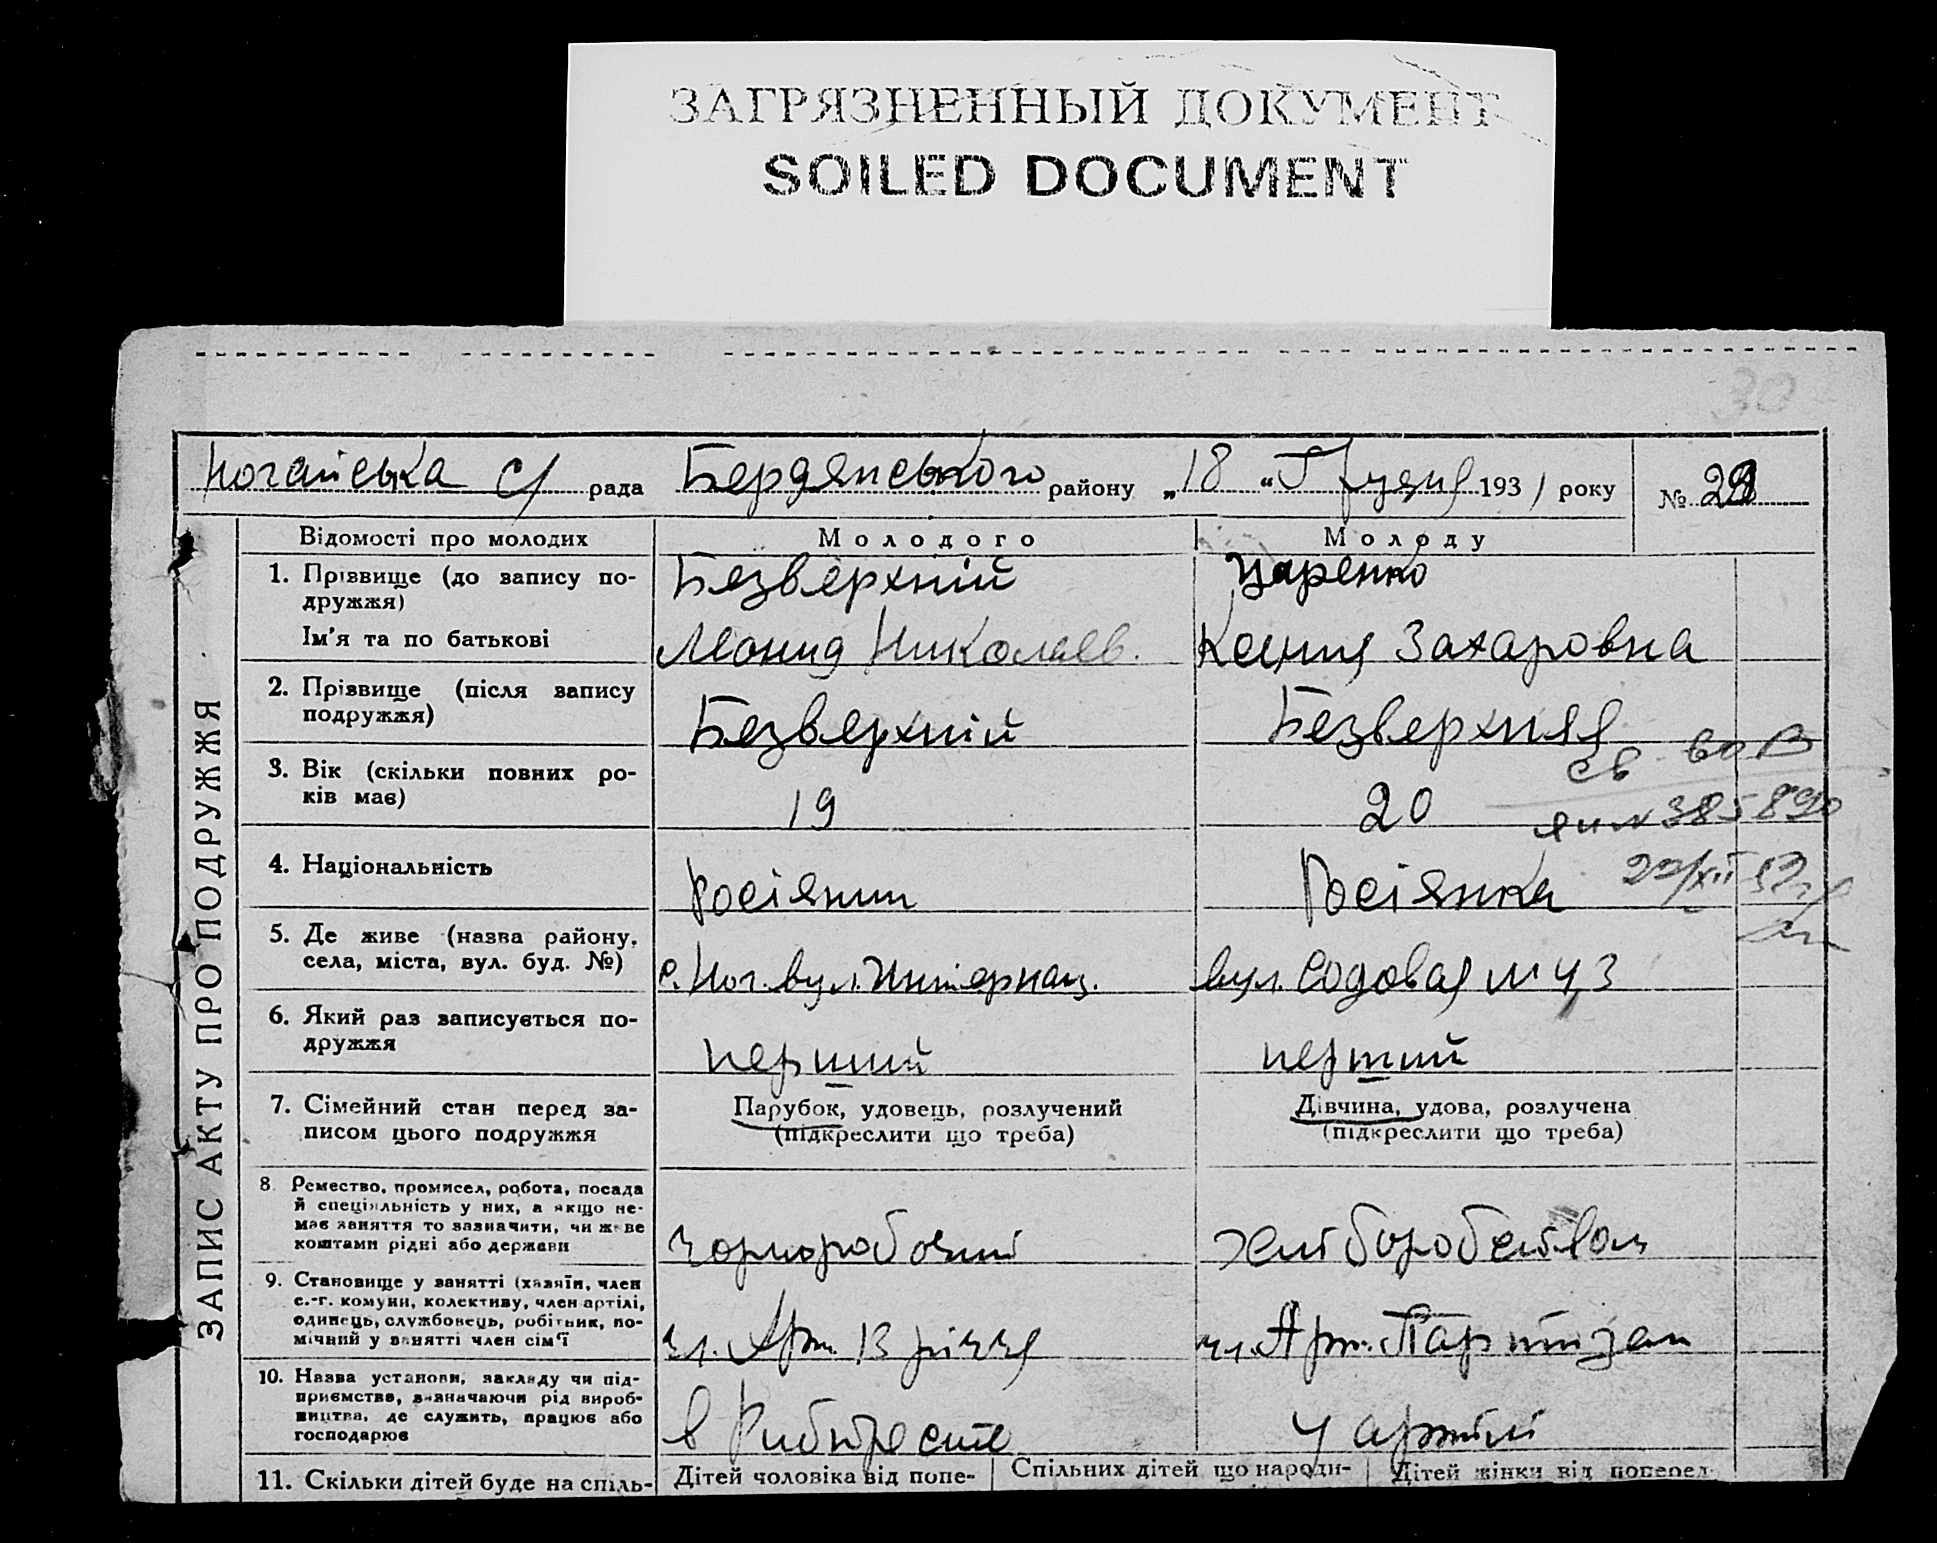 ЗАГРЯЗНЕННЫЙ ДОКУМЕНТ
SOILED DOCUMENT
30
Ногайська с/ рада Бердянського району „18“ Грудня 1931 року № 29
ЗАПИС АКТУ ПРО ПОДРУЖЖЯ
Відомості про молодих
Молодого
Молоду
1. Прізвище (до запису по-
дружжя)
Безверхній
Царенко
Ім'я та по батькові
Леонид Николаев.
Захаровна
2. Прізвище (після запису
подружжя)
Безверхній
Безверхняя
3. Вік (скільки повних ро-
ків має)
19
20
св
№ 385890
22/XII 52г
4. Національність
Росіянин
Росіянка
5. Де живе (назва району,
села, міста, вул. буд. №)
с. Ног. вул. Интернац.
вул. Садовая № 43
6. Який раз записується по-
дружжя
перший
перший
7. Сімейний стан перед за-
писом цього подружжя
Парубок, удовець, розлучений
(підкреслити що треба)
Дівчина, удова, розлучена
(підкреслити що треба)
8. Ремество, промисел, робота, посада
й спеціяльність у них, а якщо не-
має заняття то зазначити, чи живе
коштами рідні або держави
чорноробочий
хліборобством
9. Становище у занятті (хазяїн, член
с.-г. комуни, колективу, член артілі,
одинець, службовець, робітник, по-
мічний у занятті член сім'ї
чл. Арт. 13 річчя
чл. Арт. Партизан
10. Назва установи, закладу чи під-
приємства, зазначаючи рід вироб-
ництва, де служить, працює або
господарює
в Рибтресте
у артілі
11. Скільки дітей буде на спіль-
Дітей чоловіка від попе-
Спільних дітей що народи-
Дітей жінки від поперед-